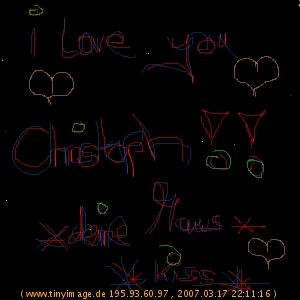 i Love you
Christoph !!
*deine Maus *
*Kiss*
( www.tinyimage.de 195.93.60.97 , 2007.03.17 22:11:16 )